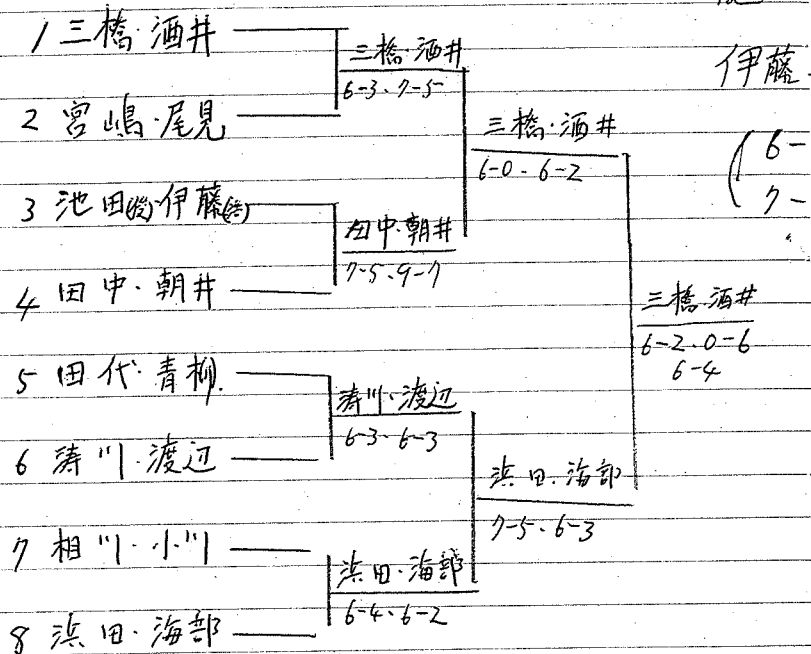 1 三橋・酒井
2 宮嶋・尾見
3 池田 伊藤
4 田中・朝井
5 田代・青柳
6 涛川・渡辺
7 相川・小川
8 浜田・海部
三橋・酒井
6-3・7-5
田中・朝井
7-5・9-7
涛川・渡辺
6-3・6-3
浜田・海部
6-4・6-2
三橋・酒井
6-0・6-2
浜田・海部
7-5・6-3
三橋・酒井
6-2・0-6
6-4
伊藤
6-
7-